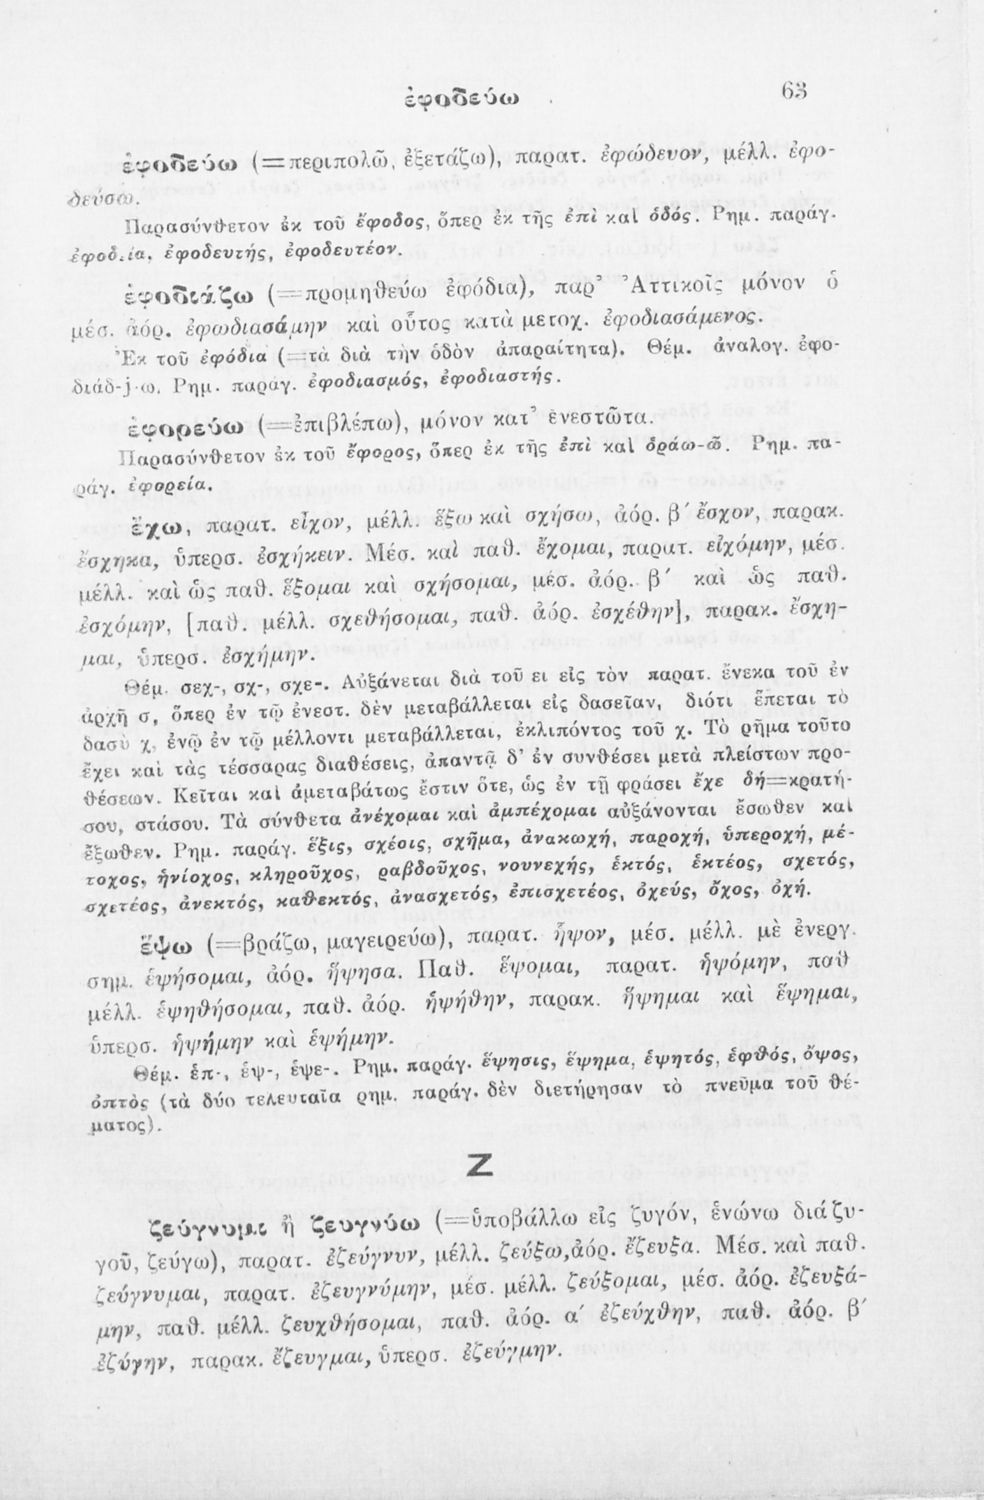 ἐφοδεύω 63
ἐφοδεύω (=περιπολῶ, ἐξετάζω), παρατ. ἐφώδευον, μέλλ. ἐφο-
δεύσω.
Παρασύνθετον ἐκ τοῦ ἔφοδος, ὅπερ ἐκ τῆς ἐπὶ καὶ ὁδός. Ρημ. παράγ.
ἐφοδεία, ἐφοδευτής, ἐφοδευτέον.
ἐφοδιάζω (=προμηθεύω ἐφόδια), παρ' Ἀττικοῖς μόνον ὁ
μέσ. ἀόρ. ἐφωδιασάμην καὶ οὗτος κατὰ μετοχ. ἐφοδιασάμενος.
Ἐκ τοῦ ἐφόδια (=τὰ διὰ τὴν ὁδὸν ἀπαραίτητα). Θέμ. ἀναλογ. ἐφο-
διάδ-j-ω. Ρημ. παράγ. ἐφοδιασμός, ἐφοδιαστής.
ἐφορεύω (=ἐπιβλέπω), μόνον κατ' ἐνεστῶτα.
Παρασύνθετον ἐκ τοῦ ἔφορος, ὅπερ ἐκ τῆς ἐπὶ καὶ ὁράω-ῶ. Ρημ. πα-
ράγ. ἐφορεία.
ἔχω, παρατ. εἶχον, μέλλ. ἕξω καὶ σχήσω, ἀόρ. β' ἔσχον, παρακ.
ἔσχηκα, ὑπερσ. ἐσχήκειν. Μέσ. καὶ παθ. ἔχομαι, παρατ. εἰχόμην, μέσ.
μέλλ. καὶ ὡς παθ. ἕξομαι καὶ σχήσομαι, μέσ. ἀόρ. β' καὶ ὡς παθ.
ἐσχόμην, [παθ. μέλλ. σχεθήσομαι, παθ. ἀόρ. ἐσχέθην], παρακ. ἔσχη-
μαι, ὑπερσ. ἐσχήμην.
Θέμ. σεχ-, σχ-, σχε-. Αὐξάνεται διὰ τοῦ ει εἰς τὸν παρατ. ἕνεκα τοῦ ἐν
ἀρχῇ σ, ὅπερ ἐν τῷ ἐνεστ. δὲν μεταβάλλεται εἰς δασεῖαν, διότι ἕπεται τὸ
δασὺ χ, ἐνῷ ἐν τῷ μέλλοντι μεταβάλλεται, ἐκλιπόντος τοῦ χ. Τὸ ρῆμα τοῦτο
ἔχει καὶ τὰς τέσσαρας διαθέσεις, ἀπαντᾷ δ' ἐν συνθέσει μετὰ πλείστων προ-
θέσεων. Κεῖται καὶ ἀμεταβάτως ἔστιν ὅτε, ὡς ἐν τῇ φράσει ἔχε δή=κρατή-
σου, στάσου. Τὰ σύνθετα ἀνέχομαι καὶ ἀμπέχομαι αὐξάνονται ἔσωθεν καὶ
ἔξωθεν. Ρημ. παράγ. ἕξις, σχέσις, σχῆμα, ἀνακωχή, παροχή, ὑπεροχή, μέ-
τοχος, ἡνίοχος, κληροῦχος, ραβδοῦχος, νουνεχής, ἑκτός, ἑκτέος, σχετός,
σχετέος, ἀνεκτός, καθεκτός, ἀνασχετός, ἐπισχετέος, ὀχεύς, ὄχος, ὀχή.
ἕψω (=βράζω, μαγειρεύω), παρατ. ἧψον, μέσ. μέλλ. μὲ ἐνεργ.
σημ. ἑψήσομαι, ἀόρ. ἥψησα. Παθ. ἕψομαι, παρατ. ἡψόμην, παθ
μέλλ. ἑψηθήσομαι, παθ. ἀόρ. ἡψήθην, παρακ. ἥψημαι καὶ ἕψημαι,
ὑπερσ. ἡψήμην καὶ ἑψήμην.
Θέμ. ἑπ-, ἑψ-, ἑψε-. Ρημ. παράγ. ἕψησις, ἕψημα, ἑψητός, ἑφθός, ὄψος,
ὀπτὸς (τὰ δύο τελευταῖα ρημ. παράγ. δὲν διετήρησαν τὸ πνεῦμα τοῦ θέ-
ματος).
Ζ
ζεύγνυμι ἢ ζευγνύω (=ὑποβάλλω εἰς ζυγόν, ἑνώνω διὰ ζυ-
γοῦ, ζεύγω), παρατ. ἐζεύγνυν, μέλλ. ζεύξω, ἀόρ. ἔζευξα. Μέσ. καὶ παθ.
ζεύγνυμαι, παρατ. ἐζευγνύμην, μέσ. μέλλ. ζεύξομαι, μέσ. ἀόρ. ἐζευξά-
μην, παθ. μέλλ. ζευχθήσομαι, παθ. ἀόρ. α' ἐζεύχθην, παθ. ἀόρ. β'
ἐζύγην, παρακ. ἔζευγμαι, ὑπερσ. ἐζεύγμην.